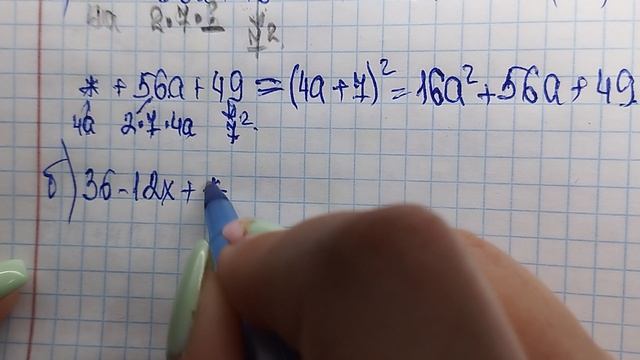 2·7·? 7²
* + 56a + 49 = (4a + 7)² = 16a² + 56a + 49
4a 2·7·4a 7².
б) 36 - 12x + *